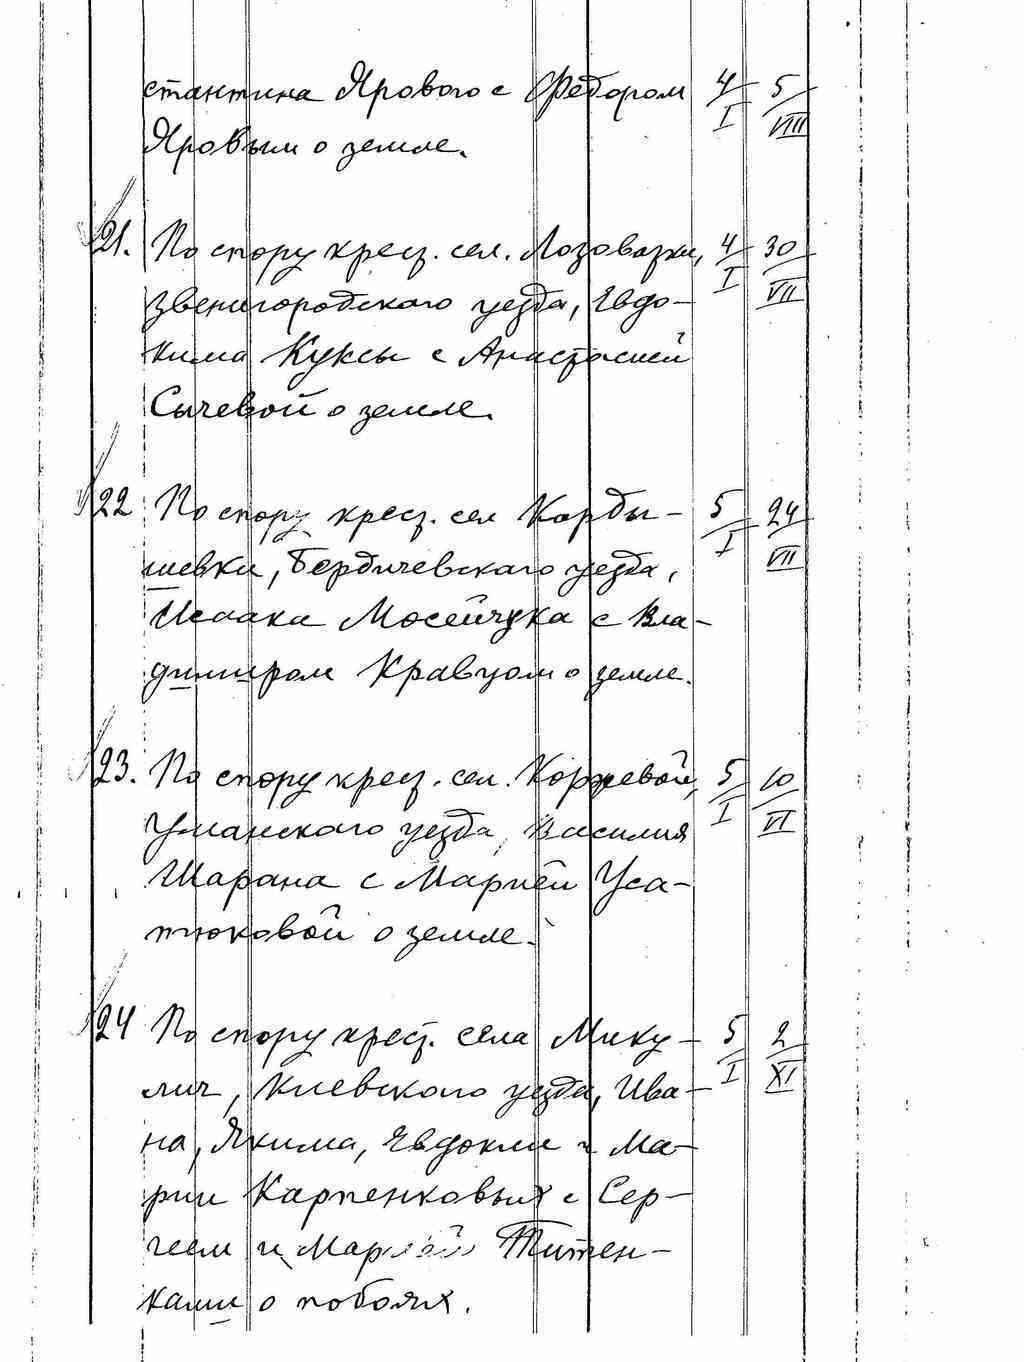 стантина Ярового с Федором 4/I 5/VIII
Яровым о земле.
21. По спору крест. сел. Лозоватки, 4/I 30/VII
Звенигородского уезда, Евдо-
кима Куксы с Анастасией
Сычевой о земле.
22 По спору крест. сел Корды- 5/I 24/VII
шевки, Бердичевского уезда,
Исаака Мосейчука с Вла-
димиром Кравцом о земле.
23. По спору крест. сел. Коржевой, 5/I 10/VI
Уманского уезда, Василия
Шарана с Марией Уса-
тюковой о земле.
24 По спору крест. села Мику- 5/I 2/XI
лич, Киевского уезда, Ива-
на, Якима, Евдокии и Ма-
рии Карпенковых с Сер-
геем и Марией Титен-
ками о побоях.